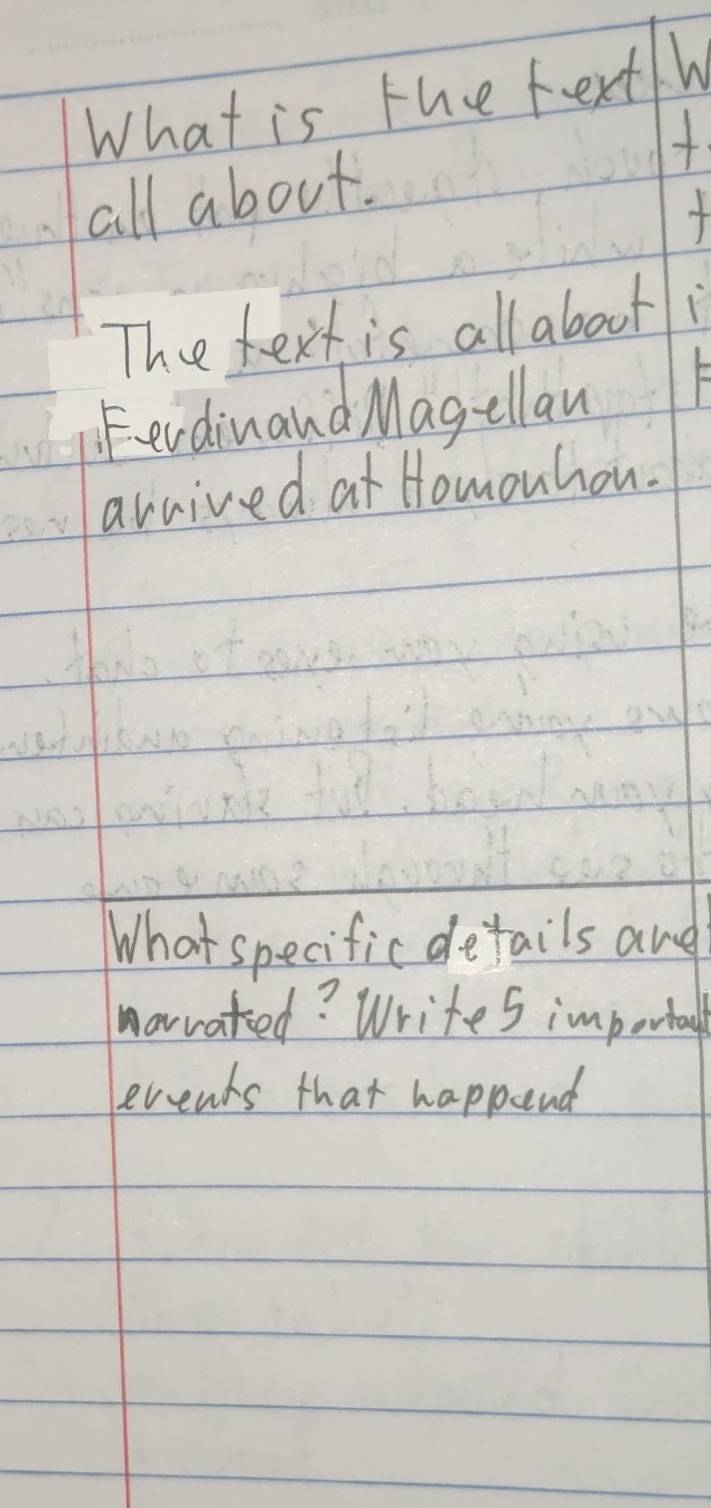 What is the text
all about.
The text is all about
Ferdinand Magellan
arrived at Homonhon.
What specific details are
narrated? Write 5 important
events that happend